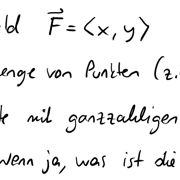 ld F⃗ = ⟨x, y⟩
enge von Punkten (z.
te mit ganzzahligen
wenn ja, was ist die